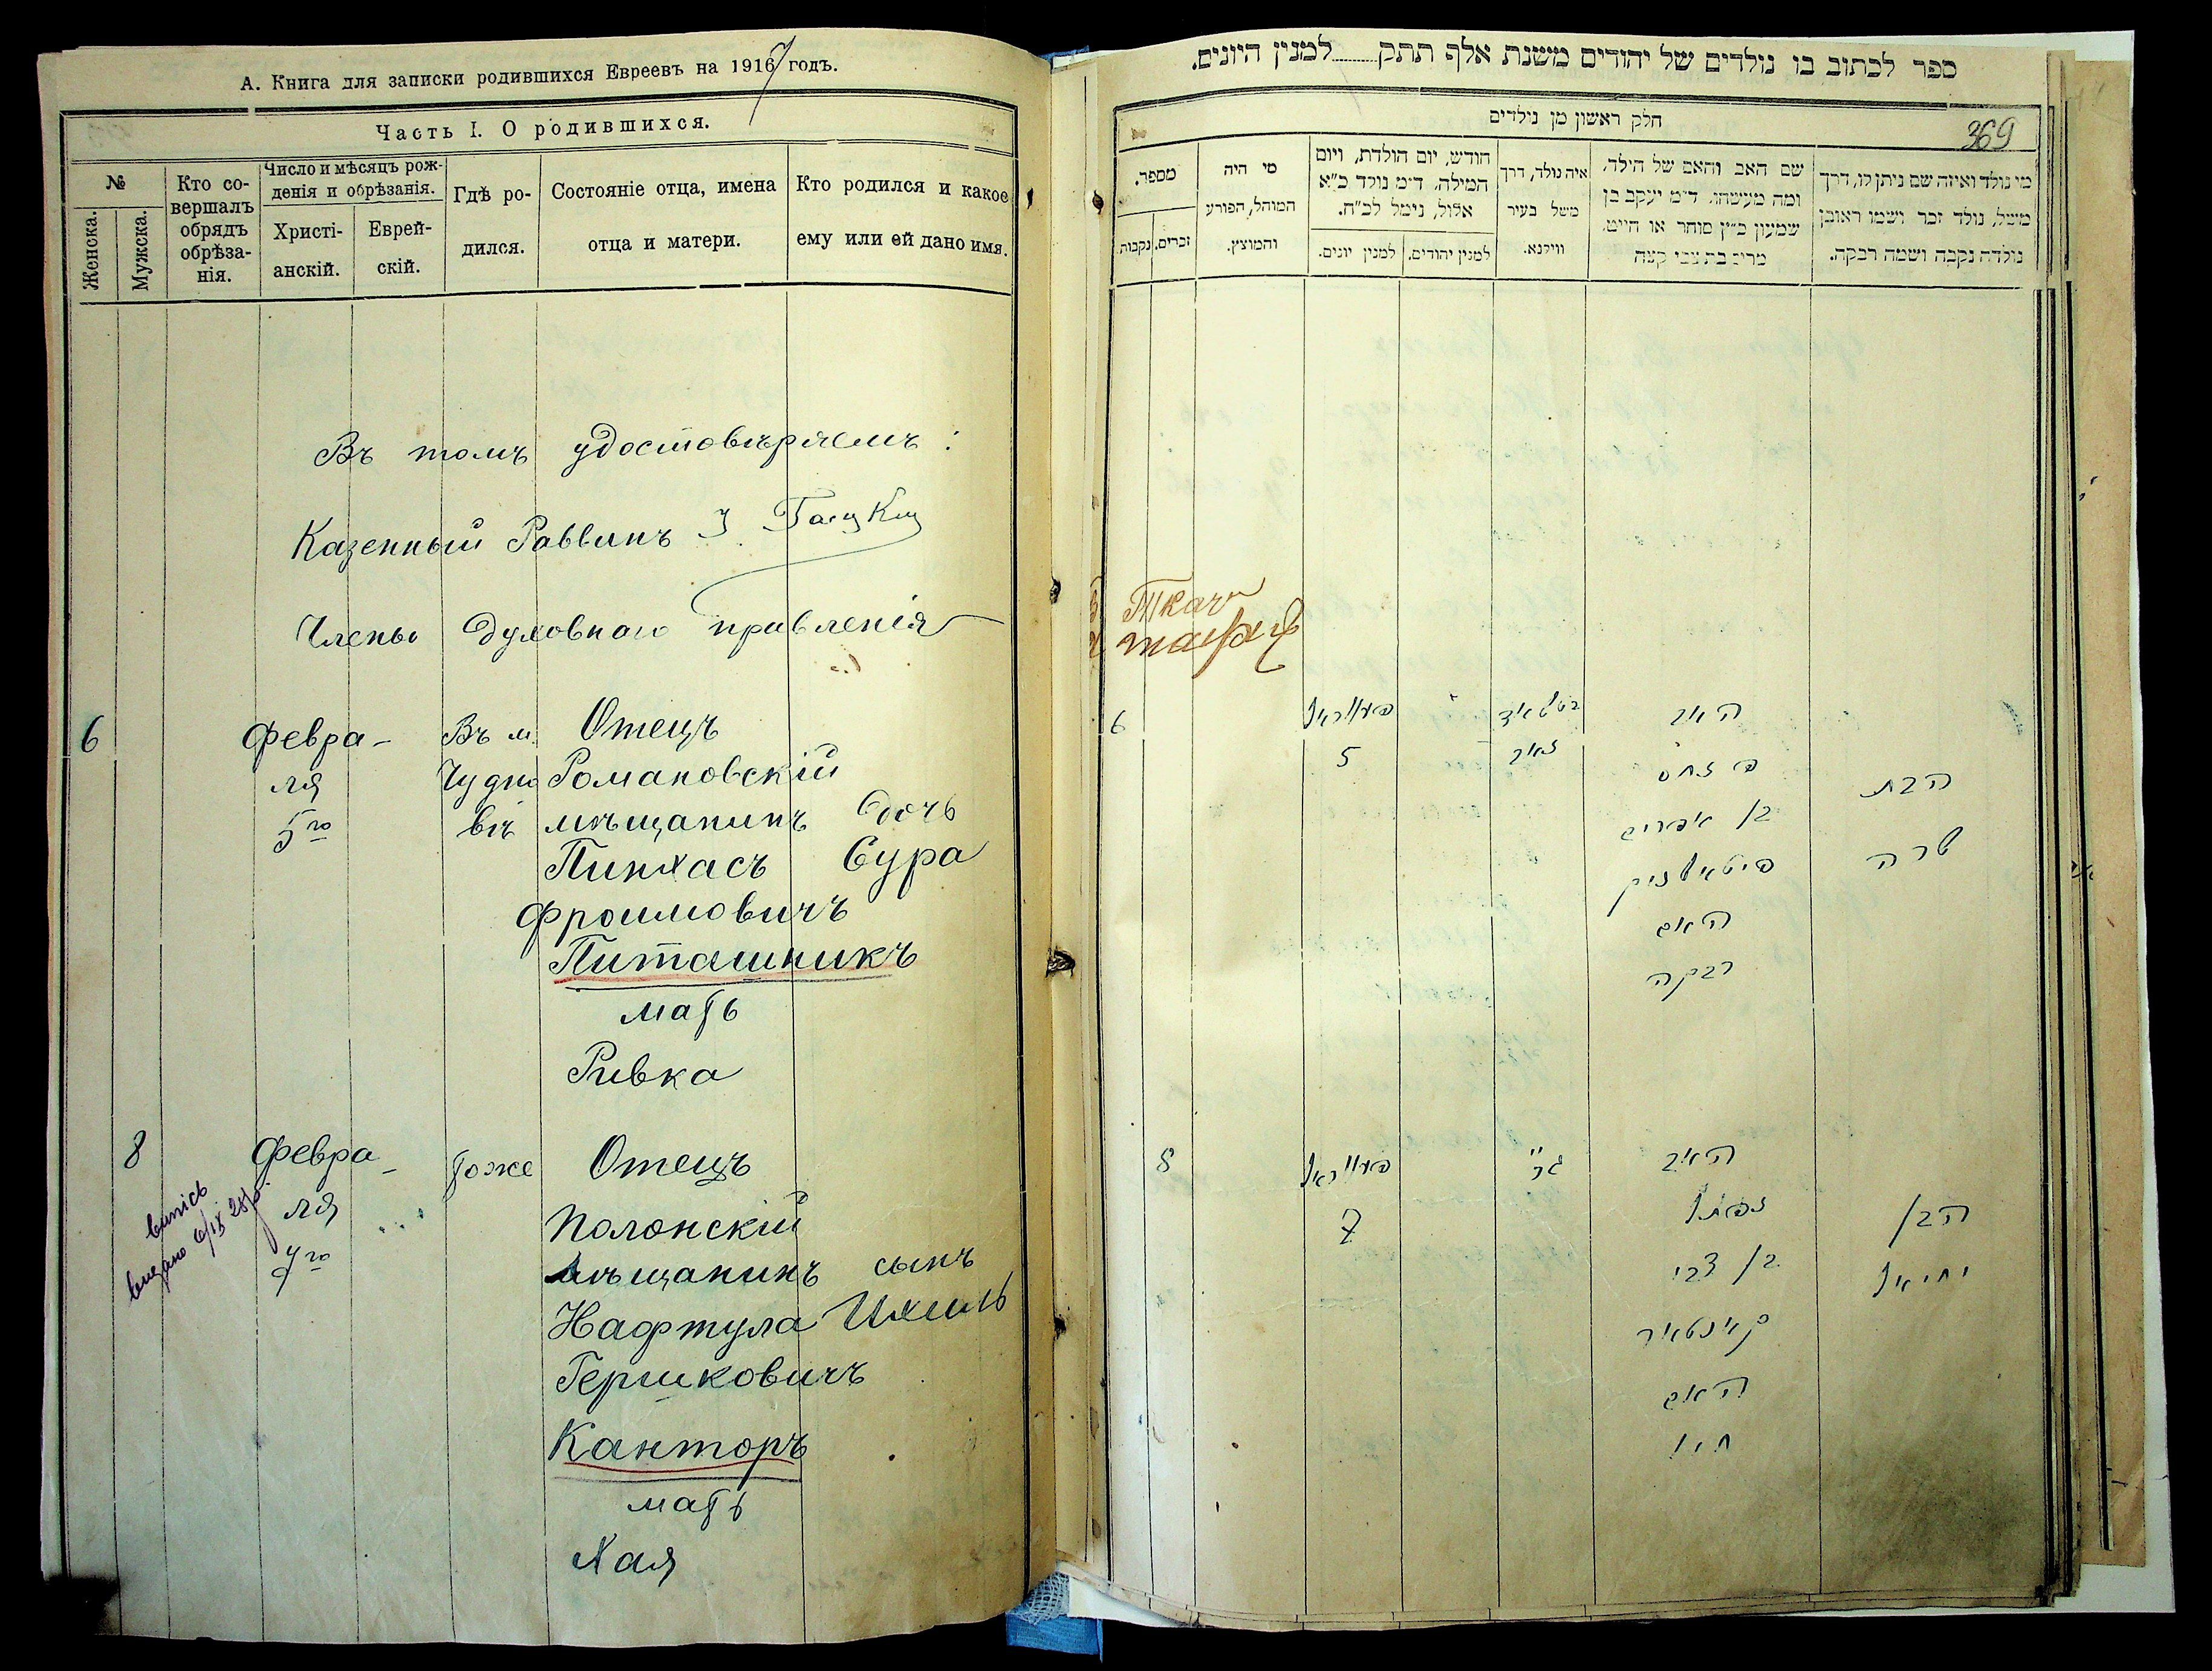 А. Книга для записки родившихся Евреевъ на 1917 годъ.
Часть I. О родившихся.
№
Женска.
Мужска.
Кто со-
вершалъ
обрядъ
обрѣза-
нія.
Число и мѣсяцъ рож-
денія и обрѣзанія.
Христі-
анскій.
Еврей-
скій.
Гдѣ ро-
дился.
Состояніе отца, имена
отца и матери.
Кто родился и какое
ему или ей дано имя.
Въ томъ удостовѣряемъ:
Казенный Раввинъ
Члены духовнаго правленія
6
Февра-
ля
5го
Въ м.
Чудно
вѣ
Отецъ
Романовскій
мѣщанинъ
Пинхасъ
Фроимовичъ
Питашникъ
мать
Ривка
Дочь
Сура
8
випісь
видано 6/IX 28р.
Февра-
ля
7го
тоже
Отецъ
Полонскій
мѣщанинъ
Нафтула
Гершковичъ
Канторъ
мать
Хая
сынъ
Ихиль
ספר לכתוב בו נולדים של יהודים משנת אלף תתק......למנין היונים.
חלק ראשון מן נולדים
369
מספר.
זכרים.
נקבות
מי היה
המוהל, הפורע
והמוצץ.
חודש, יום הולדת, ויום
המילה. ד״מ נולד כ״א
אלול, נימל לכ״ח.
למנין יהודים.
למנין יונים.
איה נולד, דרך
משל בעיר
ווילנא.
שם האב והאם של הילד.
ומה מעשהו. ד״מ יעקב בן
שמעון כ״ץ סוחר או חייט.
מרים בת צבי קצה
מי נולד ואיזה שם ניתן לו, דרך
משל, נולד זכר ושמו ראובן
נולדה נקבה ושמה רבקה.
Ткачъ
6
פעווראל
5
האב
פנחס
בן אפרים
פיטאשניק
האם
רבקה
הבת
שרה
8
פעווראל
7
גנ״ל
האב
נפתלי
בן צבי
קאנטאר
האם
חיה
הבן
יחיאל